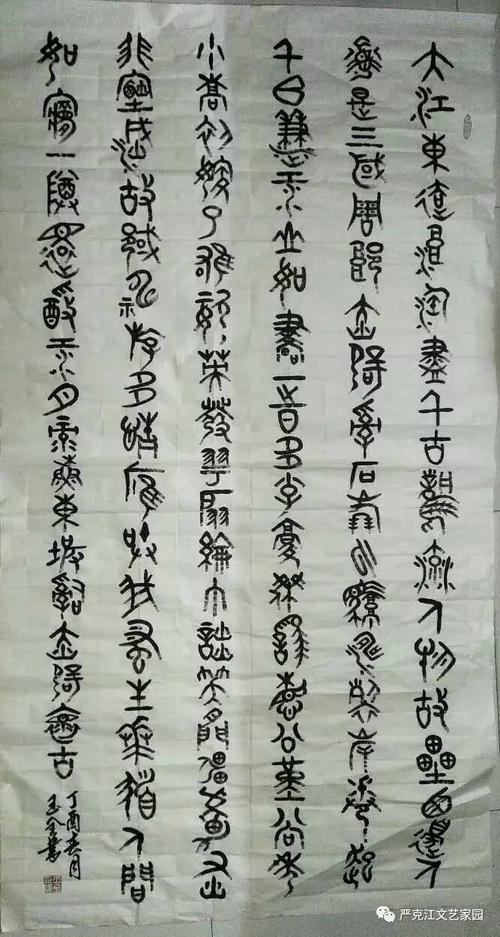 大江東去浪淘盡千古風流人物故壘西邊人
道是三國周郎赤壁亂石驚濤岸捲起
千堆雪江山如畫一時多少豪傑遙想公瑾當年
小喬初嫁了雄姿英發羽扇綸巾談笑間強虜灰
飛煙滅故國神遊多情應笑我早生華髮人間
如夢一尊還酹江月蘇軾東坡詞赤壁懷古
丁酉月
严克江文艺家园